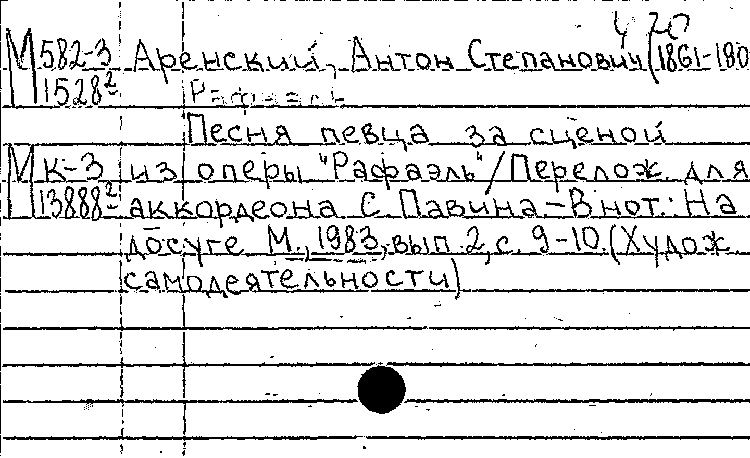 М 582-3 Аренский, Антон Степанович (1861-190
1528² Рафаэль
Песня певца за сценой
М к-3 из оперы "Рафаэль"/Перелож. для
13888² аккордеона С. Павина.-В нот.: На
досуге М., 1983, вып. 2, с. 9-10. (Худож.
самодеятельности)